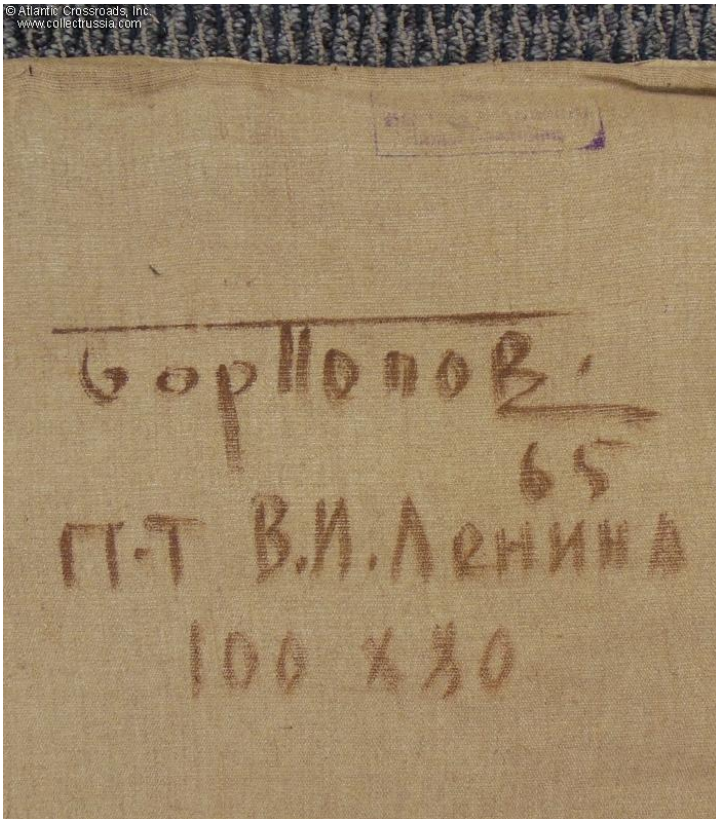 © Atlantic Crossroads, Inc.
www.collectrussia.com
бор Попов.
65
П-Т В.И. Ленина
100 x 80